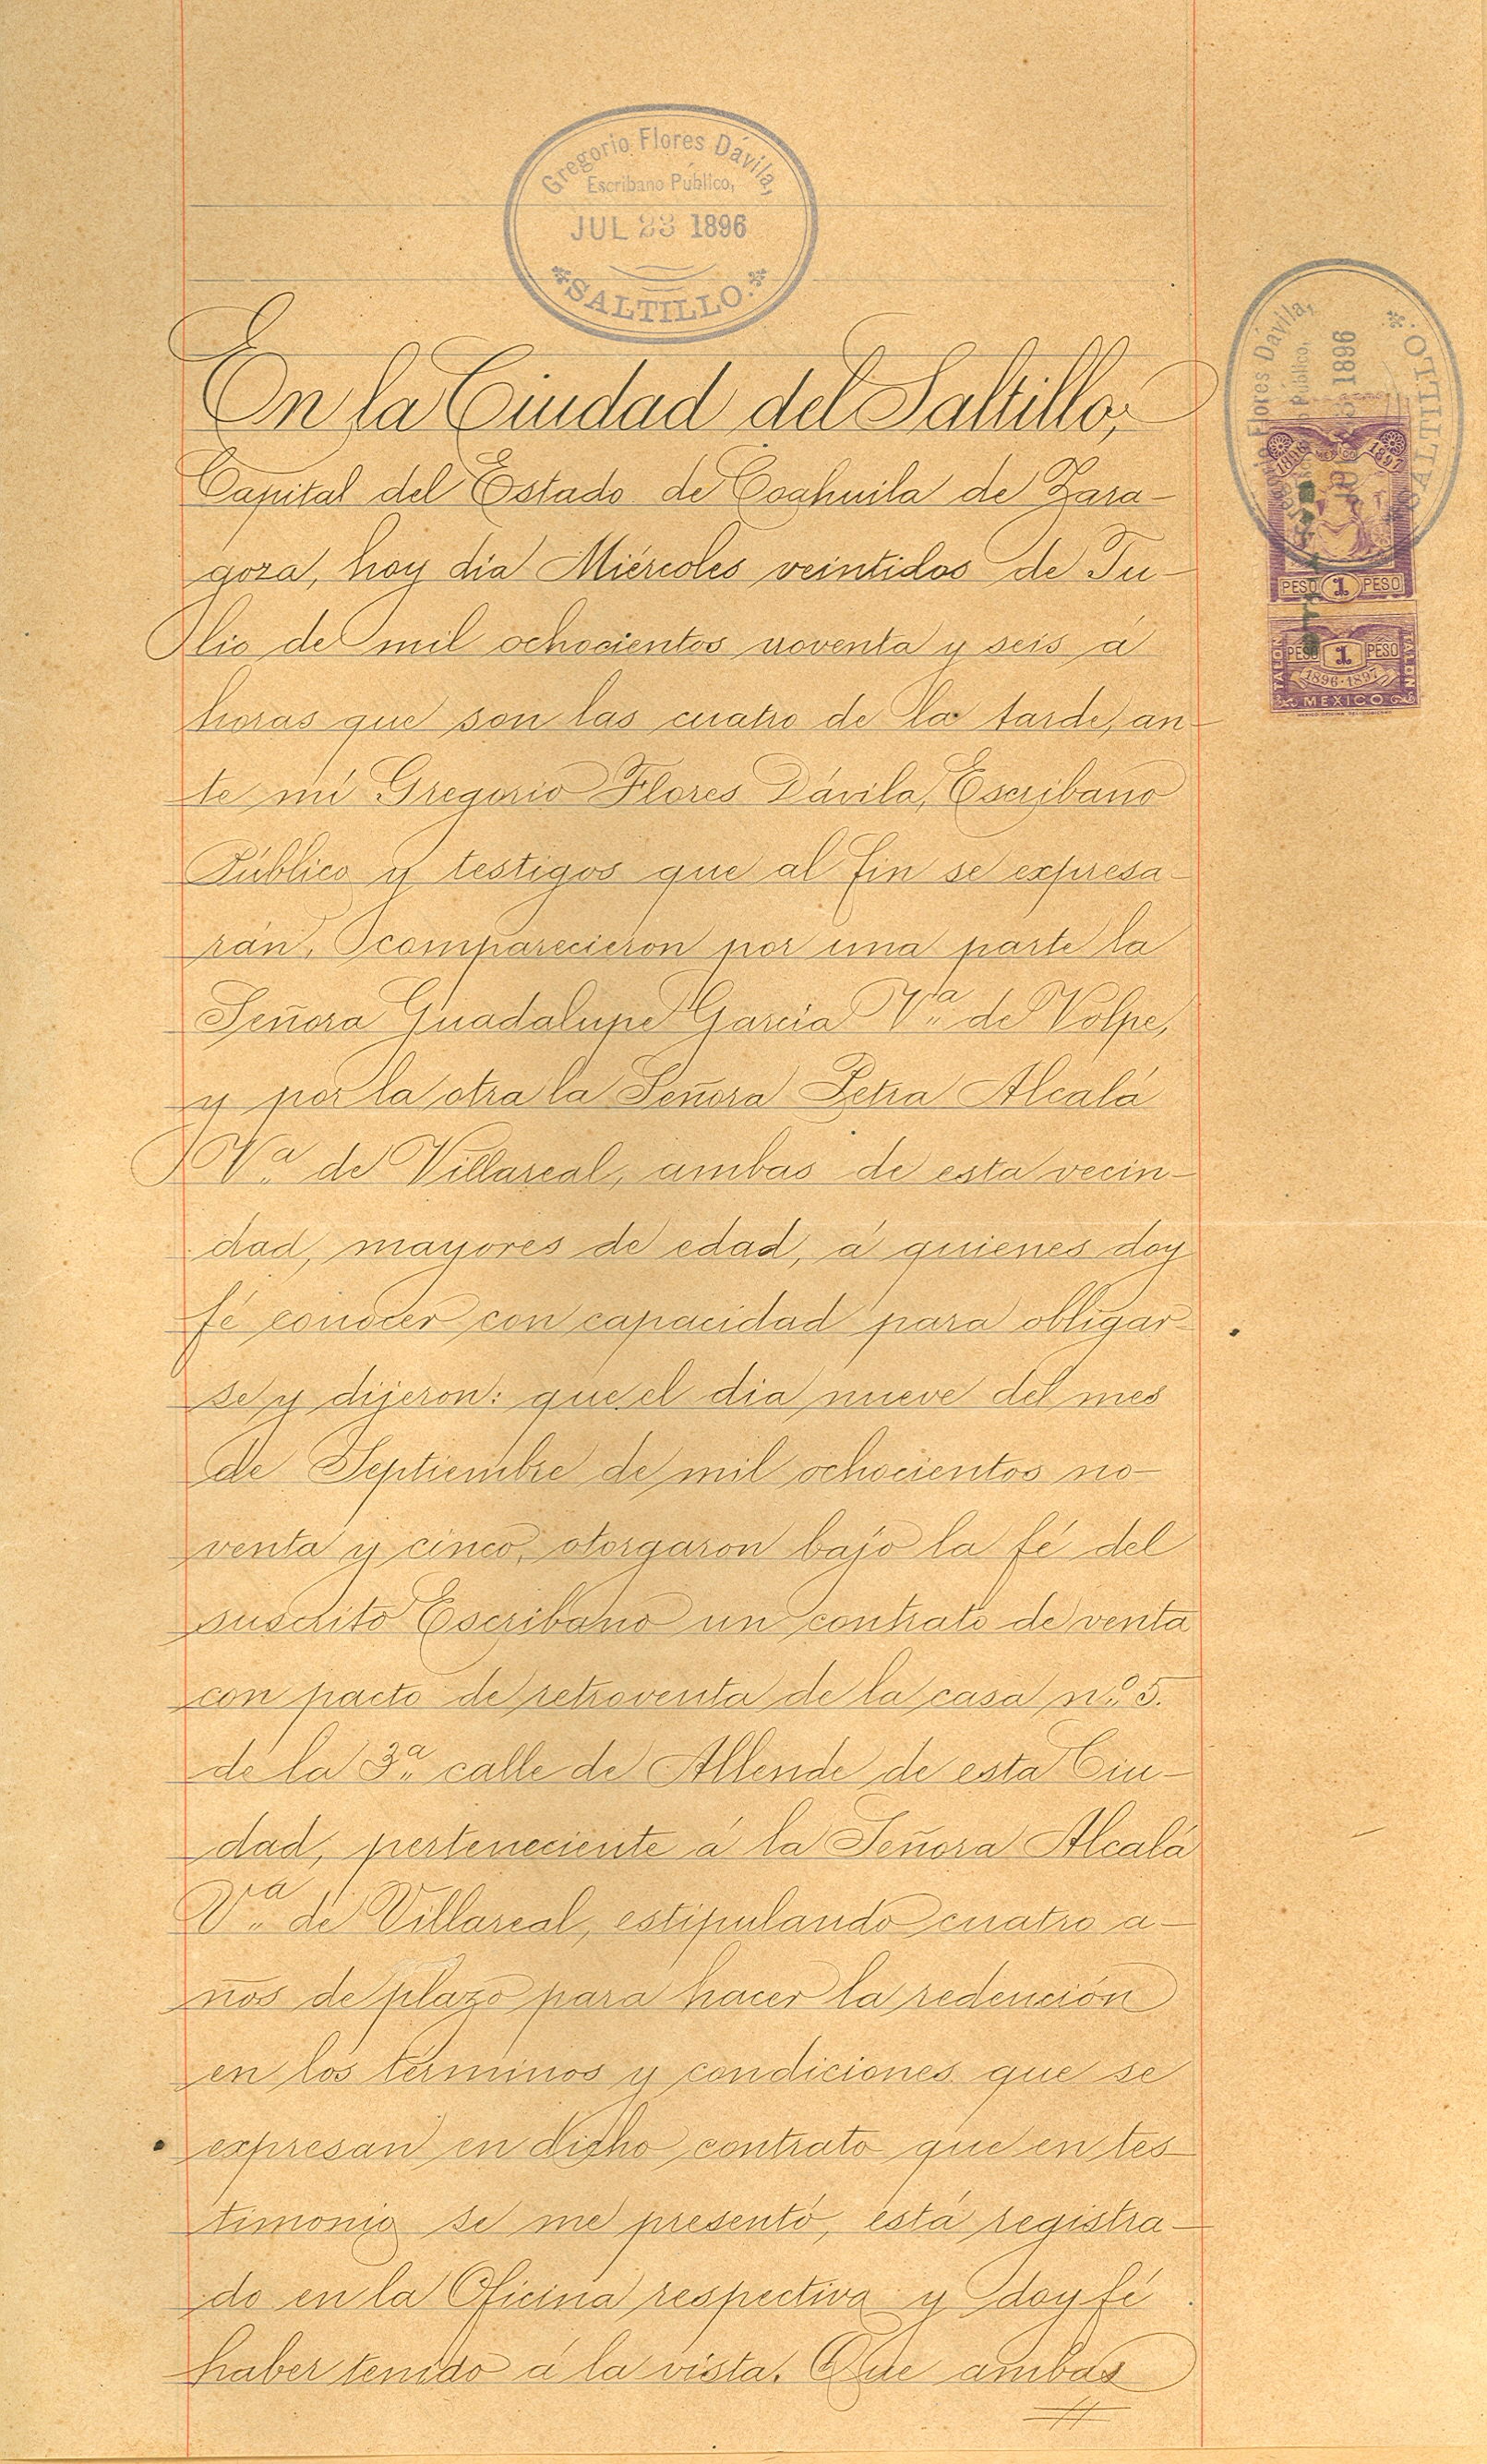 Gregorio Flores Dávila,
Escribano Público,
JUL 23 1896
SALTILLO.
En la Ciudad del Saltillo,
Capital del Estado de Coahuila de Zara-
goza, hoy dia Miércoles veintidos de Ju-
lio de mil ochocientos noventa y seis á
horas que son las cuatro de la tarde, an-
te mí Gregorio Flores Dávila, Escribano
Público y testigos que al fin se expresa-
rán, comparecieron por una parte la
Señora Guadalupe Garcia Vª de Volpe,
y por la otra la Señora Petra Alcalá
Vª de Villareal, ambas de esta vecin-
dad, mayores de edad, á quienes doy
fé conocer con capacidad para obligar-
se y dijeron: que el dia nueve del mes
de Septiembre de mil ochocientos no-
venta y cinco, otorgaron bajo la fé del
suscrito Escribano un contrato de venta
con pacto de retroventa de la casa nº 5.
de la 3ª calle de Allende de esta Ciu-
dad, perteneciente á la Señora Alcalá
Vª de Villareal, estipulando cuatro a-
ños de plazo para hacer la redención
en los términos y condiciones que se
expresan en dicho contrato que en tes-
timonio se me presentó, está registra-
do en la Oficina respectiva y doy fé
haber tenido á la vista. Que ambas
Flores Dávila,
Público,
1896
SALTILLO.
1896 MEXICO 1897
PESO 1 PESO
PESO 1 PESO
TALON 1896-1897 TALON
MEXICO